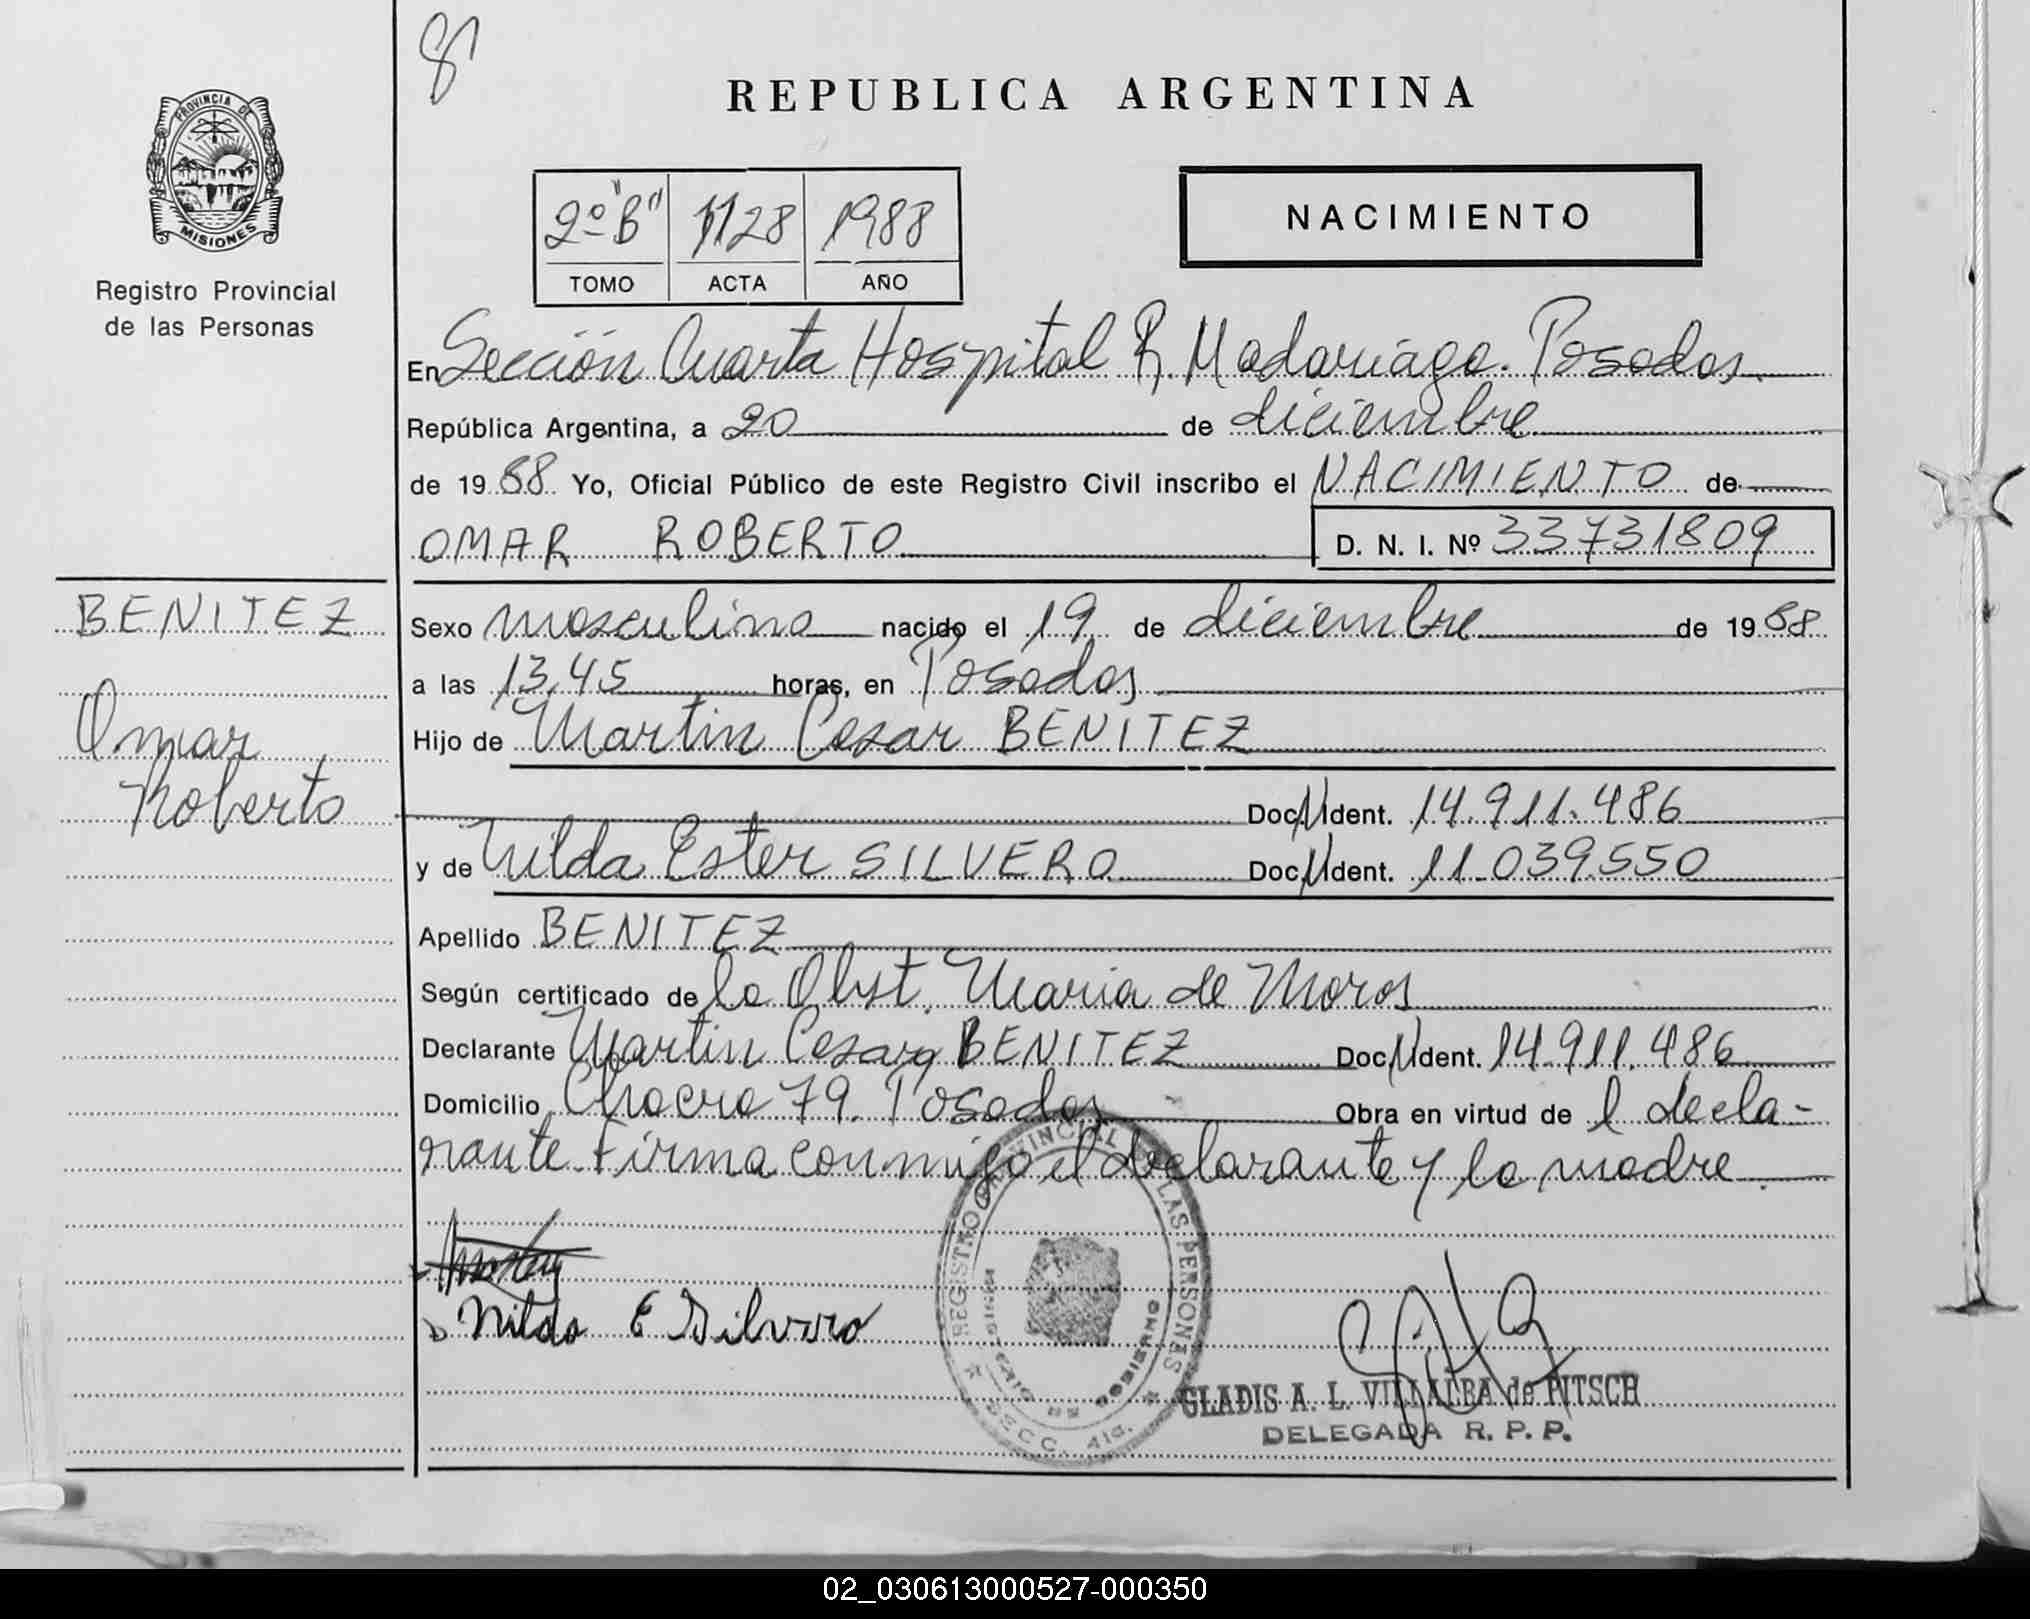 8
REPUBLICA ARGENTINA
PROVINCIA DE
MISIONES
Registro Provincial
de las Personas
2º "B" 1128 1988
TOMO ACTA AÑO
NACIMIENTO
En Sección Cuarta Hospital R. Madariaga. Posadas.
República Argentina, a 20 de diciembre
de 1988 Yo, Oficial Público de este Registro Civil inscribo el NACIMIENTO de
OMAR ROBERTO D. N. I. Nº 33731809
BENITEZ
Omar
Roberto
Sexo masculino nacido el 19 de diciembre de 1988
a las 13,45 horas, en Posadas
Hijo de Martin Cesar BENITEZ
Doc. Ident. 14.911.486
y de Nilda Ester SILVERO Doc. Ident. 11.039.550
Apellido BENITEZ
Según certificado de la Obst. Maria de Moros
Declarante Martin Cesar BENITEZ Doc. Ident. 14.911.486
Domicilio Chacra 79. Posadas Obra en virtud de l decla-
rante Firma conmigo el declarante y la madre.
Nilda E Silvero
REGISTRO PROVINCIAL DE LAS PERSONAS
GOBIERNO
SECC. 4ta.
GLADIS A. L. VILLALBA de PITSCH
DELEGADA R. P. P.
02_030613000527-000350